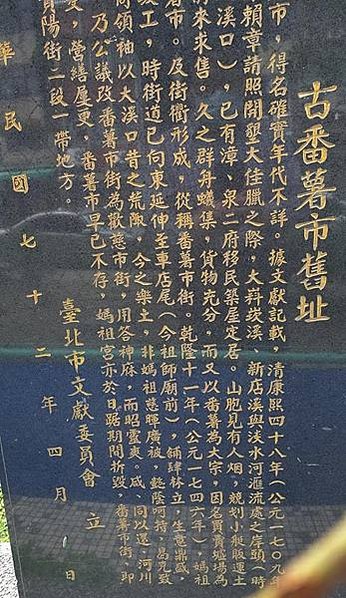 古番薯市舊址
市，得名確實年代不詳。據文獻記載，清康熙四十八年（公元一七〇九年
賴章請照開墾大佳臘之際，大料崁溪、新店溪與淡水河滙流處之岸頭（時
溪口），已有漳、泉二府移民築屋定居。山胞見有人烟，競划小艇販運土
來求售。久之群舟蟻集，貨物充分，而又以番薯為大宗，因名貿賣墟場為
市。及街衢形成，從稱番薯市街。乾隆十一年（公元一七四六年），媽祖
工，時街道已向東延伸至車店尾（今祖師廟前），舖肆林立，生意鼎盛，
領袖以大溪口昔之荒陬，今之樂土，非媽祖慈暉廣被，默蔭呵持，曷克致
乃公議改番薯市街為歡慈市街，用答神庥，而昭靈爽。咸、同以還，河川
變，營繕屢更，番薯市早已不存，媽祖宮亦於日踞期間折毀，番薯市街，即
貴陽街二段一帶地方。
臺北市文獻委員會 立
華民國七十二年四月 日